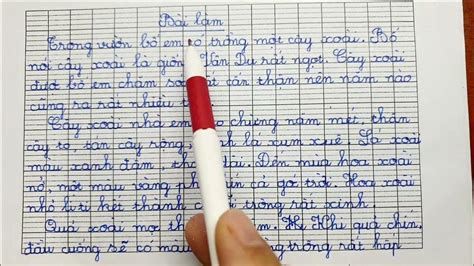 Bài làm
Trong vườn bố em có trồng một cây xoài. Bố
nói cây xoài là giống Vân Du rất ngọt. Cây xoài
được bố em chăm rất cẩn thận nên năm nào
cũng ra rất nhiều
Cây xoài nhà em cao chừng năm mét, thân
cây to, tán cây rộng, lá xum xuê. Lá xoài
màu xanh đậm, dài. Đến mùa hoa xoài
nở, một màu vàng cả góc trời. Hoa xoài
nhỏ li ti kết thành trông rất xinh.
Quả xoài mọc Khi quả chín,
đầu cuống sẽ có màu trông rất hấp